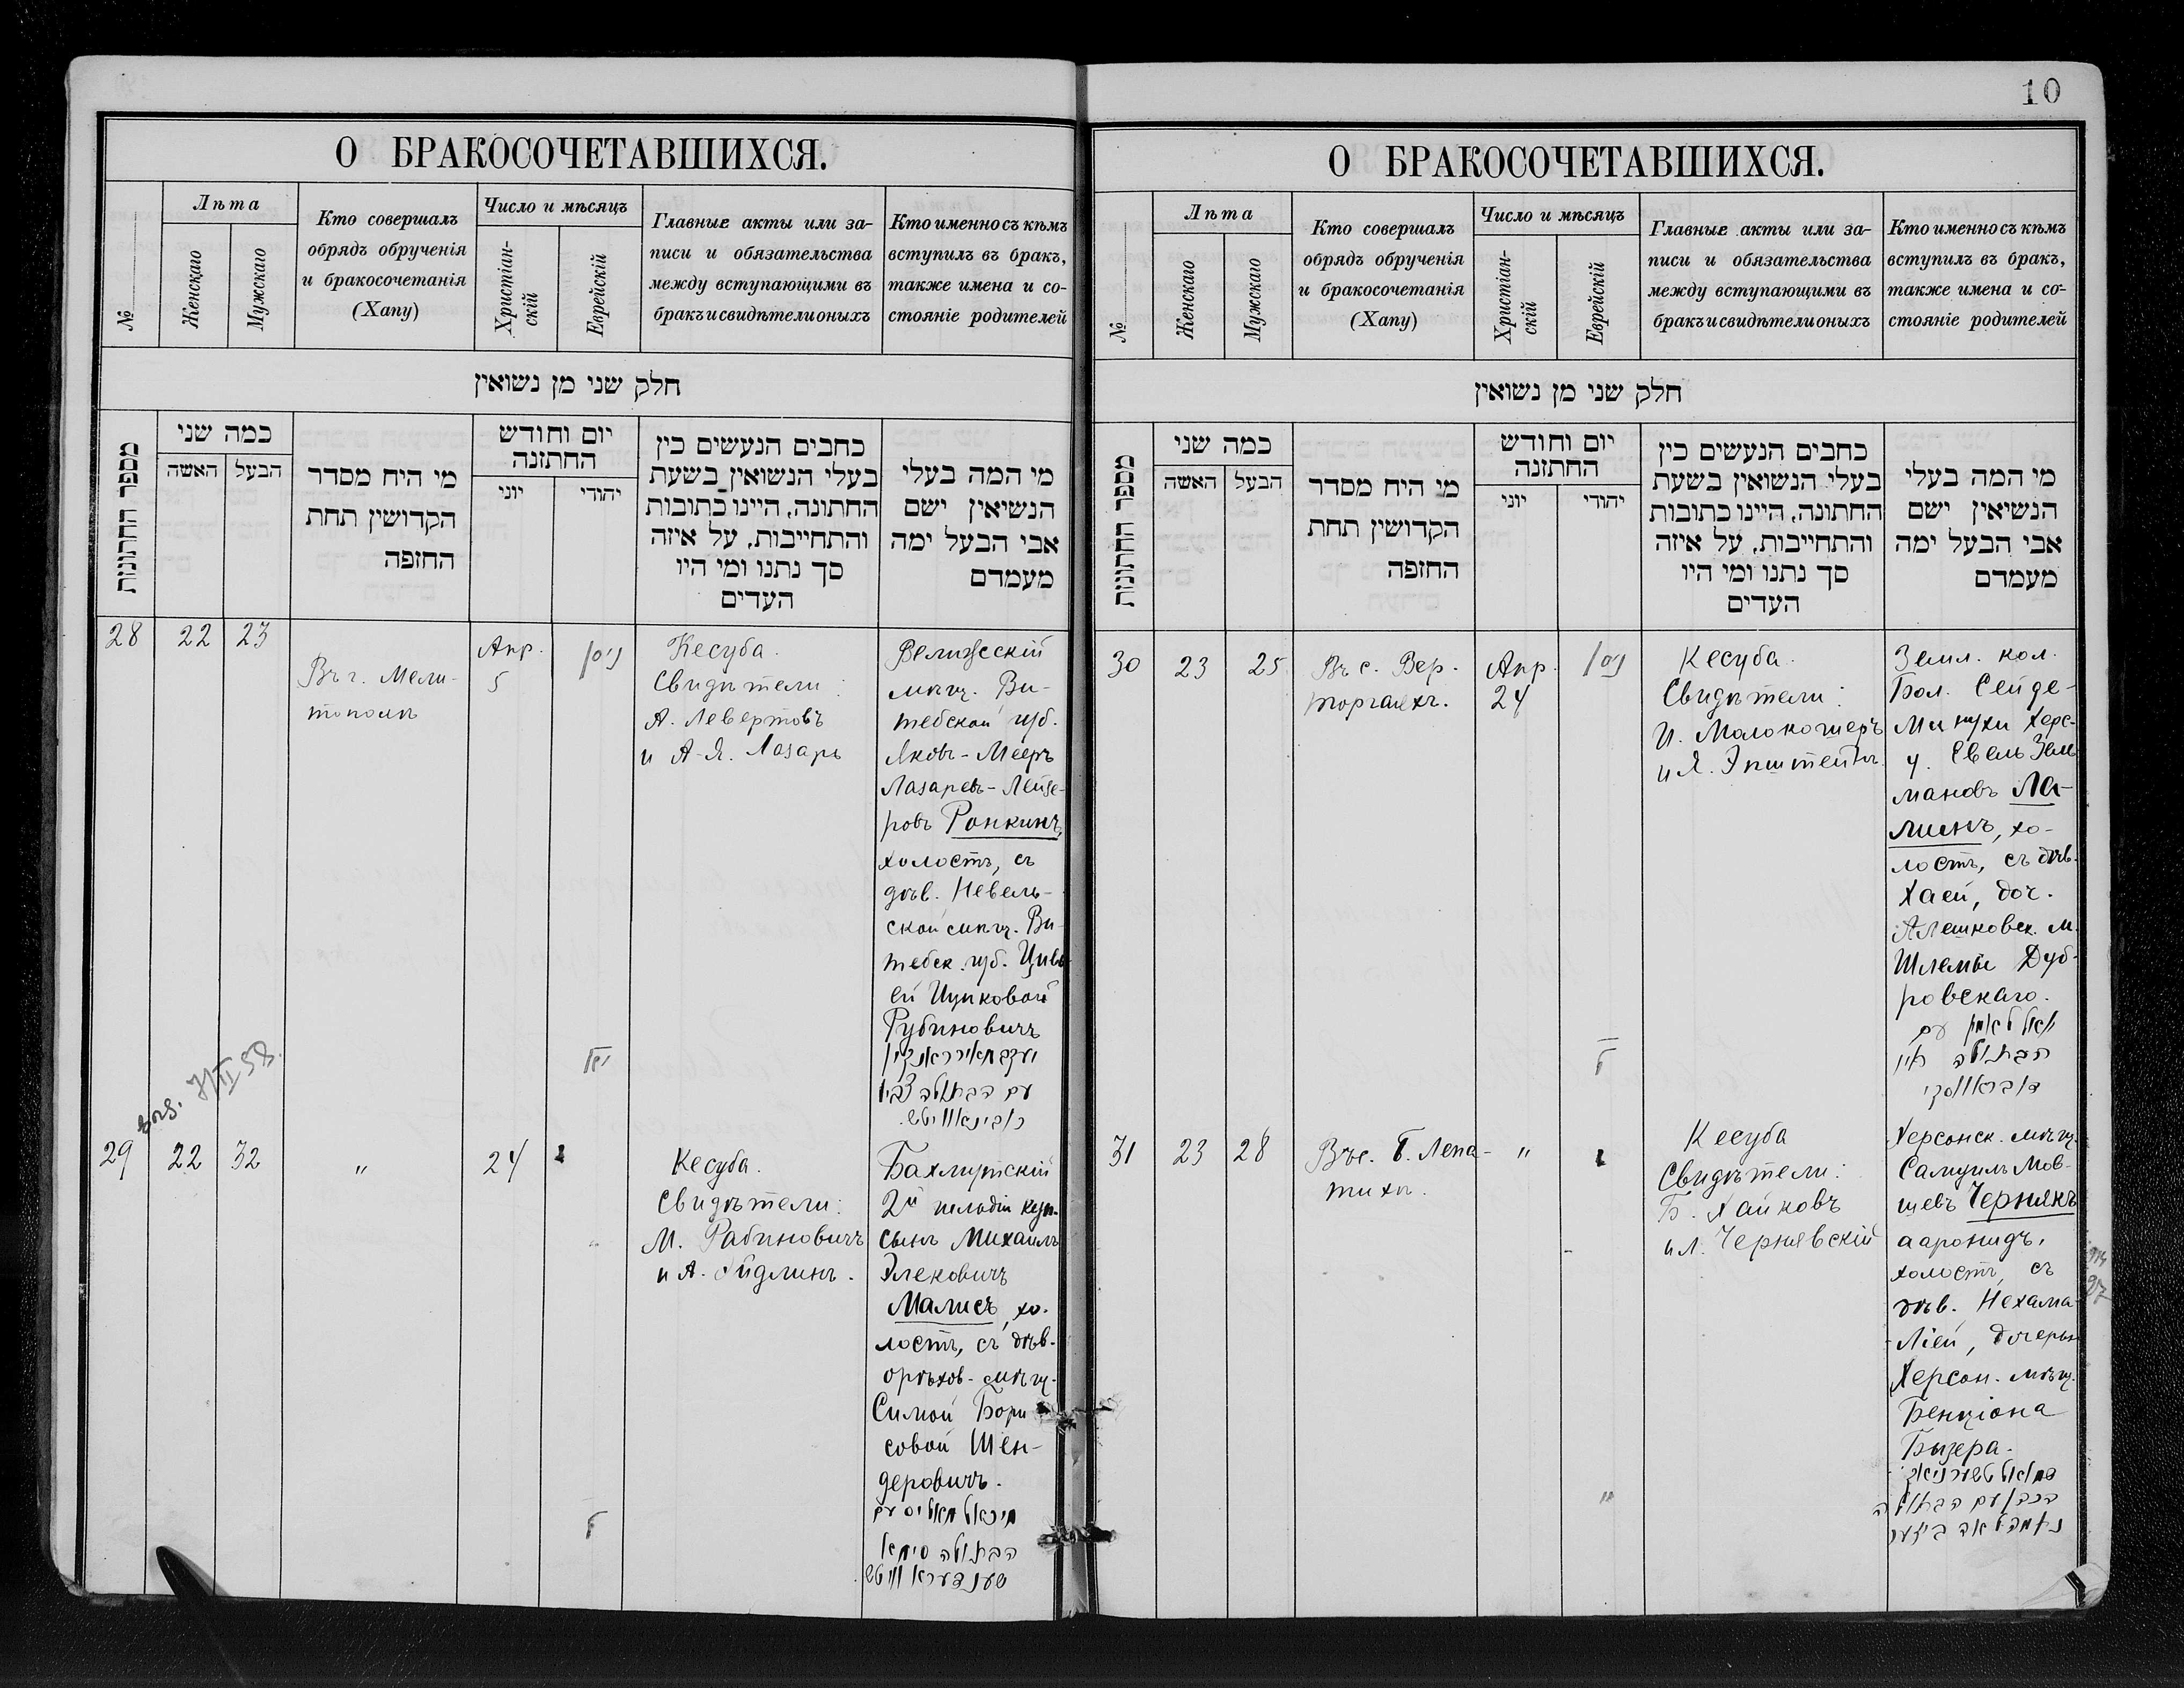 10
О БРАКОСОЧЕТАВШИХСЯ.
№
Лѣта
Женскаго
Мужскаго
Кто совершалъ
обрядъ обрученія
и бракосочетанія
(Хапу)
Число и мѣсяцъ
Христіан-
скій
Еврейскій
Главные акты или за-
писи и обязательства
между вступающими въ
бракъ и свидѣтели оныхъ
Кто именно съ кѣмъ
вступилъ въ бракъ,
также имена и со-
стояніе родителей
חלק שני מן נשואין
מספר החתונות
כמה שני
האשה
הבעל
מי היח מסדר
הקדושין תחת
החזפה
יום וחודש
החתזנה
יוני
יהודי
כחבים הנעשים כין
בעלי הנשואין בשעת
החתונה, היינו כתובות
והתחייבות, על איזה
סך נתנו ומי היו
העדים
מי המה בעלי
הנשיאין ישם
אבי הבעל ימה
מעמדם
28
22
23
Въ г. Мели-
тополѣ
Апр.
5
ניסן
Кесуба.
Свидѣтели:
А. Левертовъ
и А-Я. Лазарь
Велижскій
мѣщ. Ви-
тебской губ.
Яковъ-Мееръ
Лазаревъ-Лейзе-
ровъ Ронкинъ,
холостъ, съ
дѣв. Невель-
ской мѣщ. Ви-
тебск. губ. Циве-
ей Ицковой
Рубиновичъ
עם הבתולה צביו
ראבינאוויטש
29
22
32
"
24
Кесуба.
Свидѣтели:
М. Рабиновичъ
и А. Эйдлинъ.
Бахмутскій
2й гильдіи куп.
сынъ Михаилъ
Элековичъ
Малисъ, хо-
лостъ, съ дѣв.
орѣхов. мѣщ.
Симой Бори-
совой Шен-
деровичъ.
מיכאל מאליס עם
הבתולה סימא
שענדעראוויטש
О БРАКОСОЧЕТАВШИХСЯ.
№
Лѣта
Женскаго
Мужскаго
Кто совершалъ
обрядъ обрученія
и бракосочетанія
(Хапу)
Число и мѣсяцъ
Христіан-
скій
Еврейскій
Главные акты или за-
писи и обязательства
между вступающими въ
бракъ и свидѣтели оныхъ
Кто именно съ кѣмъ
вступилъ въ бракъ,
также имена и со-
стояніе родителей
חלק שני מן נשואין
מספר החתונות
כמה שני
האשה
הבעל
מי היח מסדר
הקדושין תחת
החזפה
יום וחודש
החתזנה
יוני
יהודי
כחבים הנעשים כין
בעלי הנשואין בשעת
החתונה, היינו כתובות
והתחייבות, על איזה
סך נתנו ומי היו
העדים
מו המה בעלי
הנשיאין ישם
אבי הבעל ימה
מעמדם
30
23
25
Въ с. Вер.
торгаяхъ.
Апр.
24
ניסן
Кесуба.
Свидѣтели:
И. Молокошеръ
и Я. Эпштейнъ.
Земл. кол.
Бол. Сейде-
Минухи Херс-
у. Евель Зель-
мановъ Ла-
минъ, хо-
лостъ, съ дѣв.
Хаей, доч.
Алешковск. м.
Шлемы Дуб-
ровскаго.
עם
הבתולה
31
23
28
Въ с. Б. Лепа-
тихѣ.
"
Кесуба
Свидѣтели:
Б. Хайковъ
и Л. Чернявскій
Херсонск. мѣщ.
Самуилъ Мов-
шевъ Чернякъ
ааронидъ,
холостъ, съ
дѣв. Нехама-
Ліей, дочерью
Херсон. мѣщ.
Бенціона
Бызера.
שמואל טשערניאק
הכהן עם הבתולה
נחמה לאה ביזער